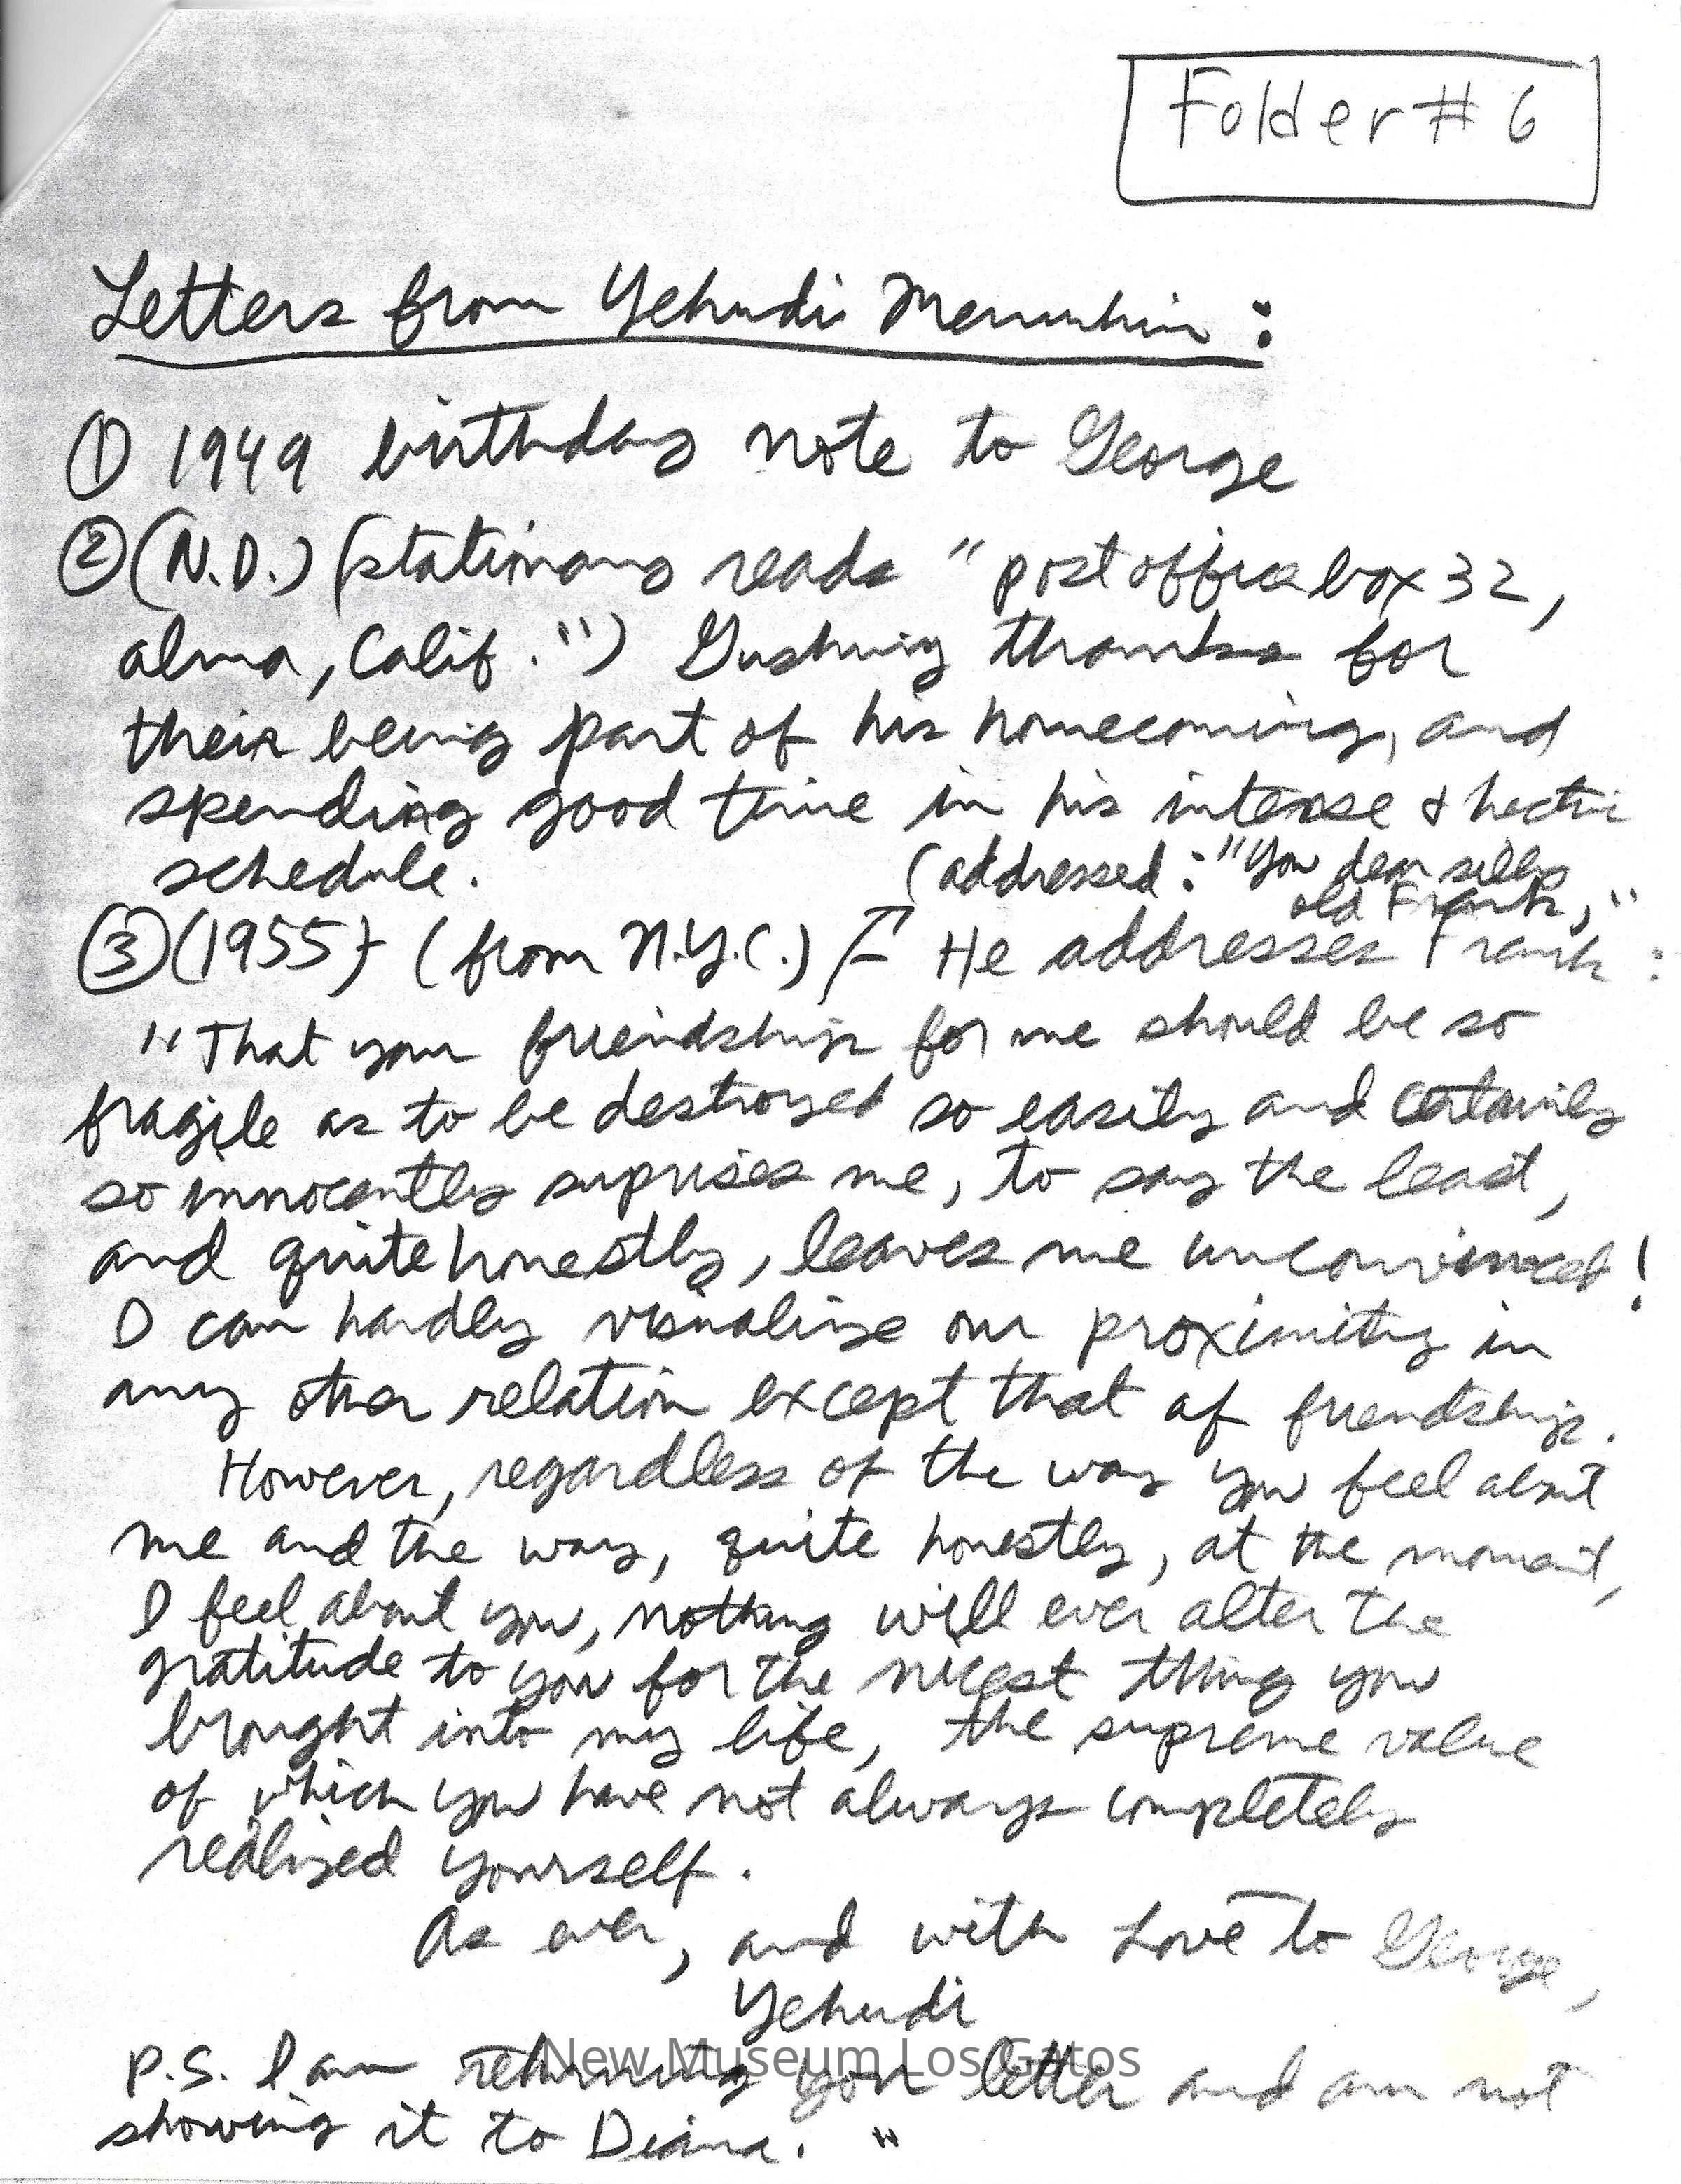 Folder # 6
Letters from Yehudi Menuhin :
① 1949 birthday note to George
② (N.D.) (stationary reads "post office box 32,
alma, Calif.") Gushing thanks for
their being part of his homecoming, and
spending good time in his intense & hectic
schedule.
(addressed: "You dear silly
old Frank,"
③ (1955) (from N.Y.C.) He addresses Frank :
"That your friendship for me should be so
fragile as to be destroyed so easily and certainly
so innocently suprises me, to say the least,
and quite honestly, leaves me unconvinced!
I can hardly visualize our proximity in
any other relation except that of friendship.
However, regardless of the way you feel about
me and the way, quite honestly, at the moment,
I feel about you, nothing will ever alter the
gratitude to you for the nicest thing you
brought into my life, the supreme value
of which you have not always completely
realized yourself.
As ever, and with Love to George,
Yehudi
P.S. I am returning your letter and am not
showing it to Diana."
New Museum Los Gatos